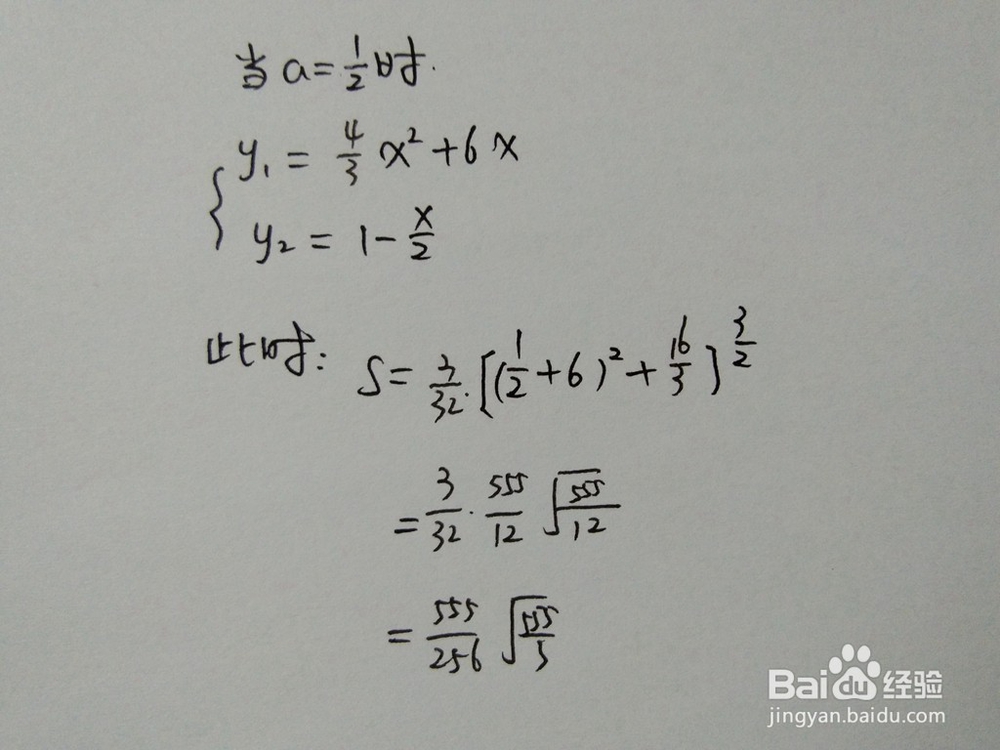 当 a=1/2时.
y₁ = 4/3 x² + 6x
y₂ = 1 - x/2
此时: S = 3/32·[(1/2+6)² + 16/3]^(3/2)
= 3/32 · 555/12 √(555/12)
= 555/256 √(555/3)
Baidu 经验
jingyan.baidu.com